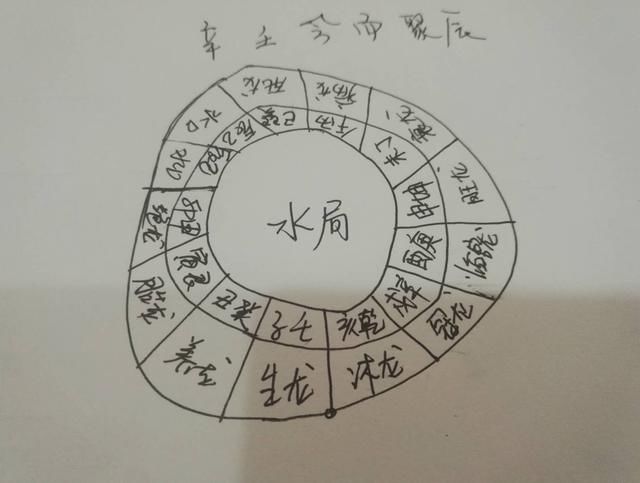 辛壬会而聚辰
死龙
病龙
衰龙
旺龙
冠龙
沐龙
生龙
养龙
胎龙
绝龙
水口
水口
巳巽
午丙
未丁
申坤
酉庚
戌辛
亥乾
子壬
癸丑
寅艮
卯甲
水局